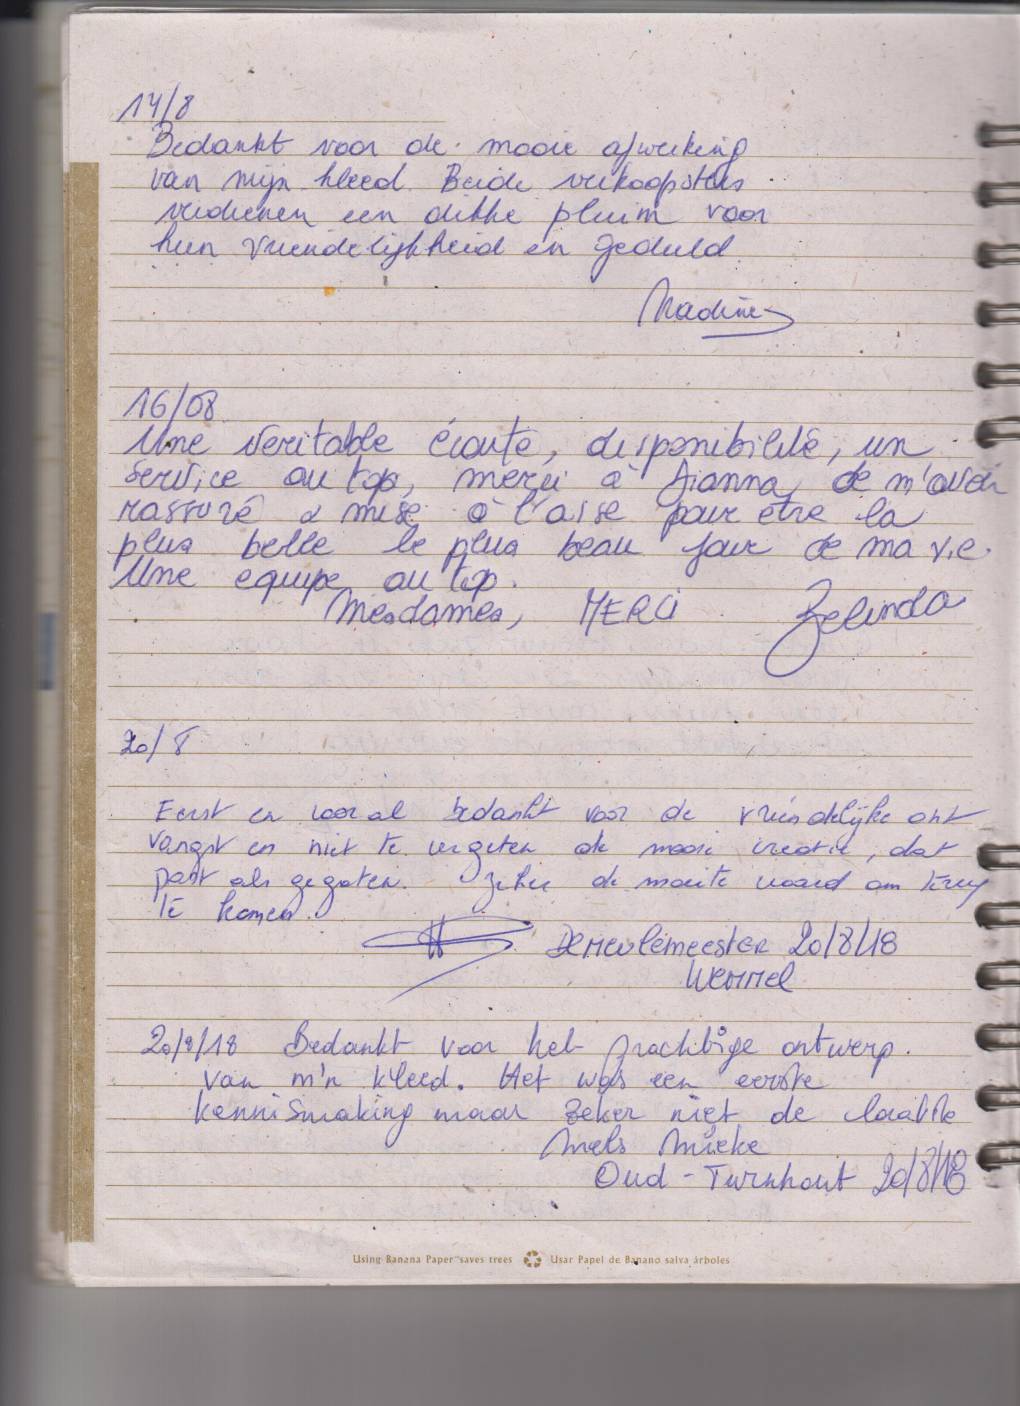 14/8
Bedankt voor de mooie afwerking
van mijn kleed. Beide verkoopsters
verdienen een dikke pluim voor
hun vriendelijkheid en geduld.
Nadine
16/08
Une veritable écoute, disponibilité, un
service au top, merci à Gianna, de m'avoir
rassuré & mise à l'aise pour être la
plus belle le plus beau jour de ma vie.
Une equipe au top.
Mesdames, MERCI Zelinda
20/8
Eerst en vooral bedankt voor de vriendelijke ont
vangst en niet te vergeten de mooie creatie, dat
past als gegoten. Zeker de moeite waard om terug
te komen.
Demeulemeester 20/8/18
Wemmel
20/8/18 Bedankt voor het prachtige ontwerp.
van m'n kleed. Het was een eerste
kennismaking maar zeker niet de laatste
Mels Mieke
Oud-Turnhout 20/8/18
Using Banana Paper™ saves trees Usar Papel de Banano salva árboles